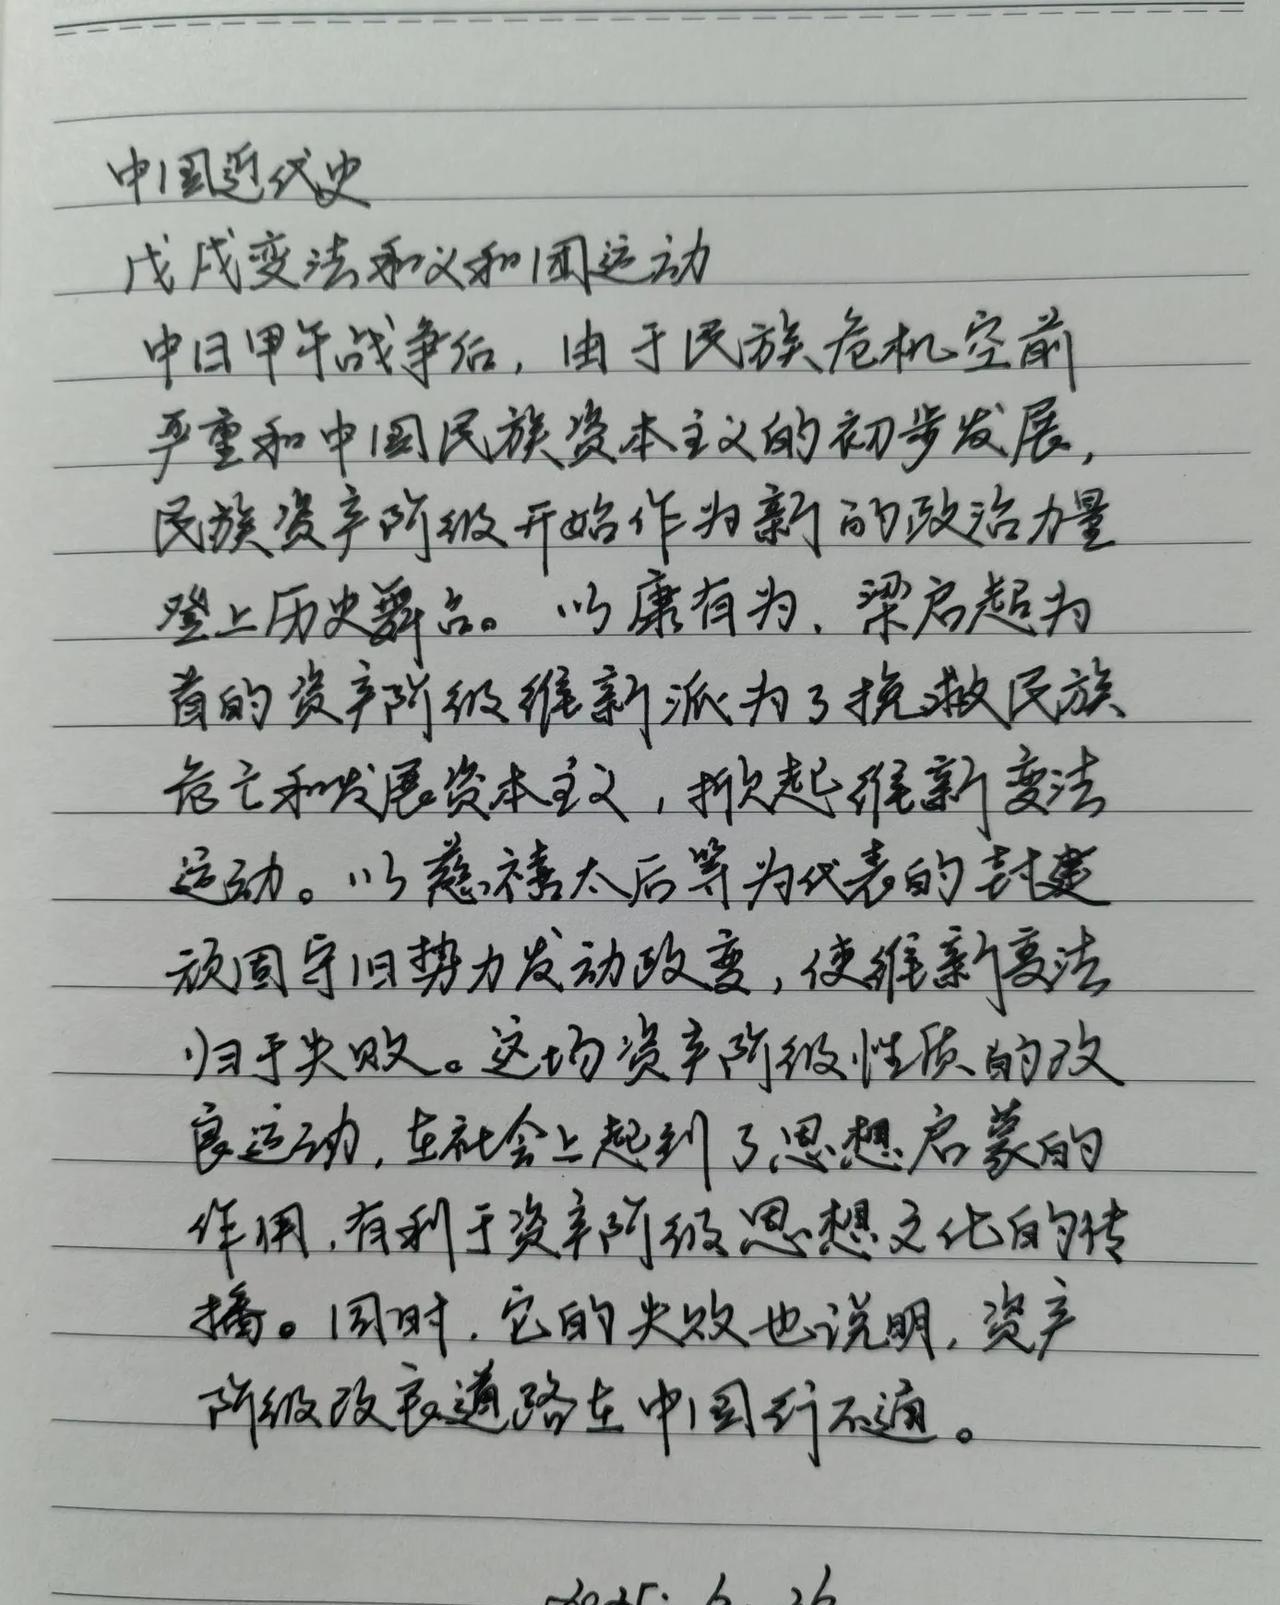 中国近代史
戊戌变法和义和团运动
中日甲午战争后，由于民族危机空前
严重和中国民族资本主义的初步发展，
民族资产阶级开始作为新的政治力量
登上历史舞台。以康有为、梁启超为
首的资产阶级维新派为了挽救民族
危亡和发展资本主义，掀起维新变法
运动。以慈禧太后等为代表的封建
顽固守旧势力发动政变，使维新变法
归于失败。这场资产阶级性质的改
良运动，在社会上起到了思想启蒙的
作用，有利于资产阶级思想文化的传
播。同时，它的失败也说明，资产
阶级改良道路在中国行不通。